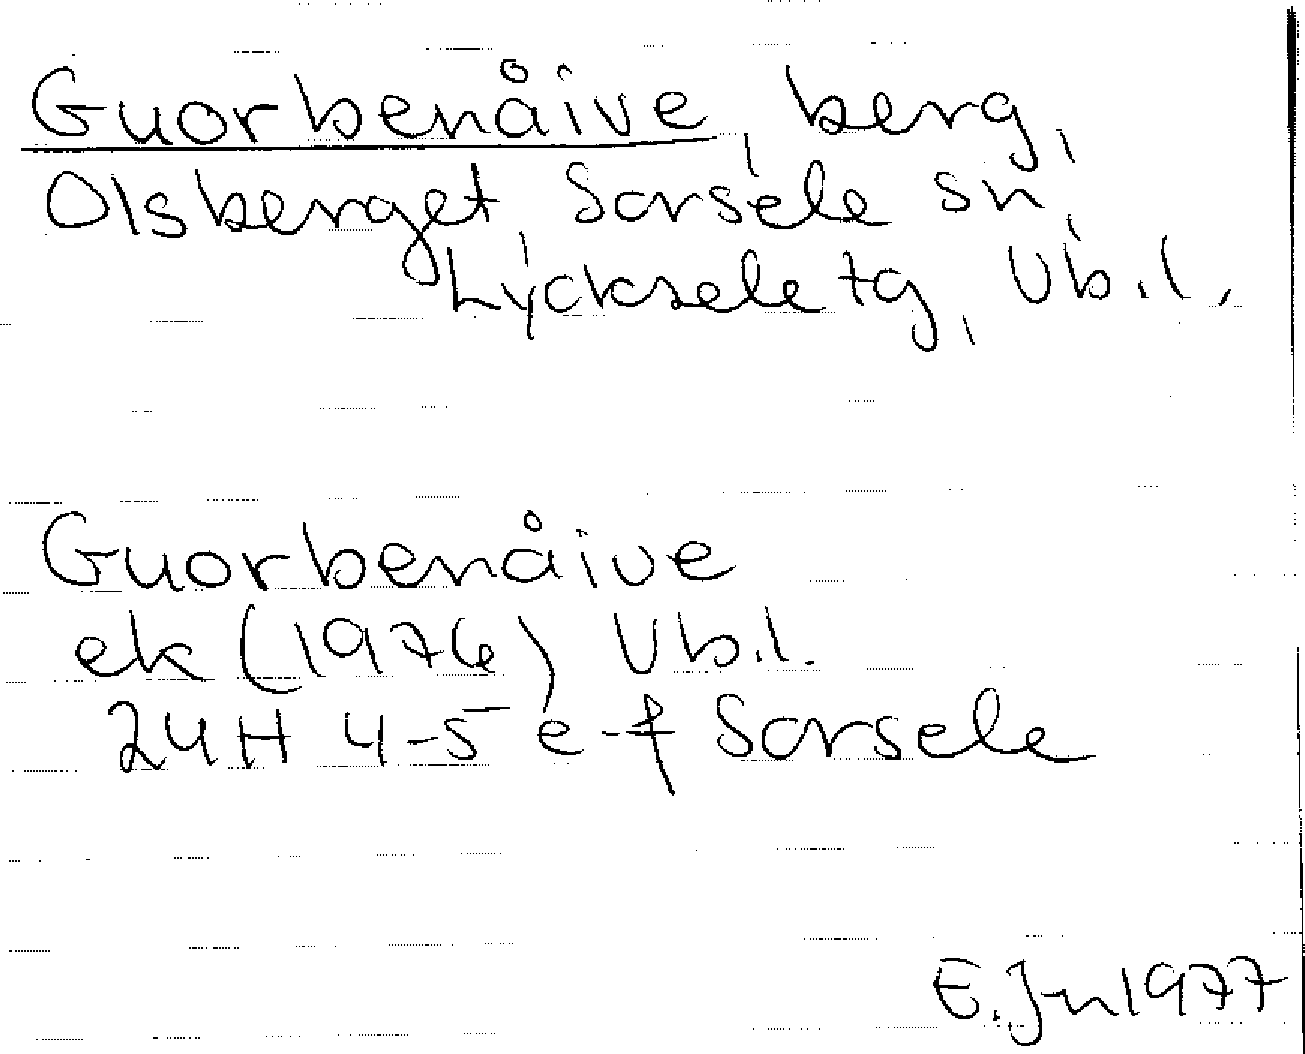 Guorbenåive, berg,
Olsberget, Sorsele sn,
Lycksele tg, Vb.l.
Guorbenåive
ek (1976) Vb.l.
24H 4-5 e-f Sorsele
E. Jn 1977